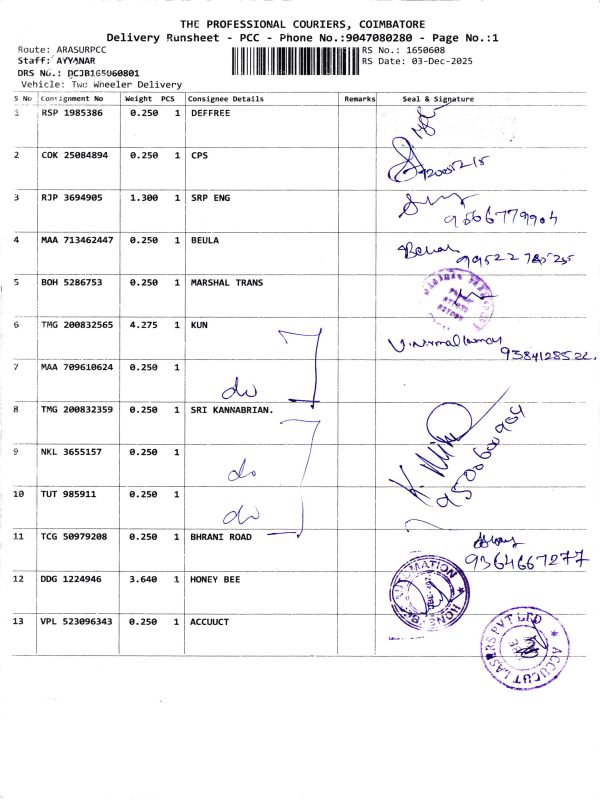 THE PROFESSIONAL COURIERS, COIMBATORE
Delivery Runsheet - PCC - Phone No.:9047080280 - Page No.:1
Route: ARASURPCC
RS No.: 1650608
Staff: AYYANAR
RS Date: 03-Dec-2025
DRS No.: DCJB165060801
Vehicle: Two Wheeler Delivery
S No Consignment No Weight PCS Consignee Details Remarks Seal & Signature
1 RSP 1985386 0.250 1 DEFFREE
2 COK 25084894 0.250 1 CPS
3 RJP 3694905 1.300 1 SRP ENG
9566779904
4 MAA 713462447 0.250 1 BEULA
5 BOH 5286753 0.250 1 MARSHAL TRANS
6 TMG 200832565 4.275 1 KUN
7 MAA 709610624 0.250 1 do
8 TMG 200832359 0.250 1 SRI KANNABRIAN.
9500600904
9 NKL 3655157 0.250 1 do
10 TUT 985911 0.250 1 do
11 TCG 50979208 0.250 1 BHRANI ROAD
9364667277
12 DDG 1224946 3.640 1 HONEY BEE
13 VPL 523096343 0.250 1 ACCUUCT
ACCUCUT LASERS PVT LTD